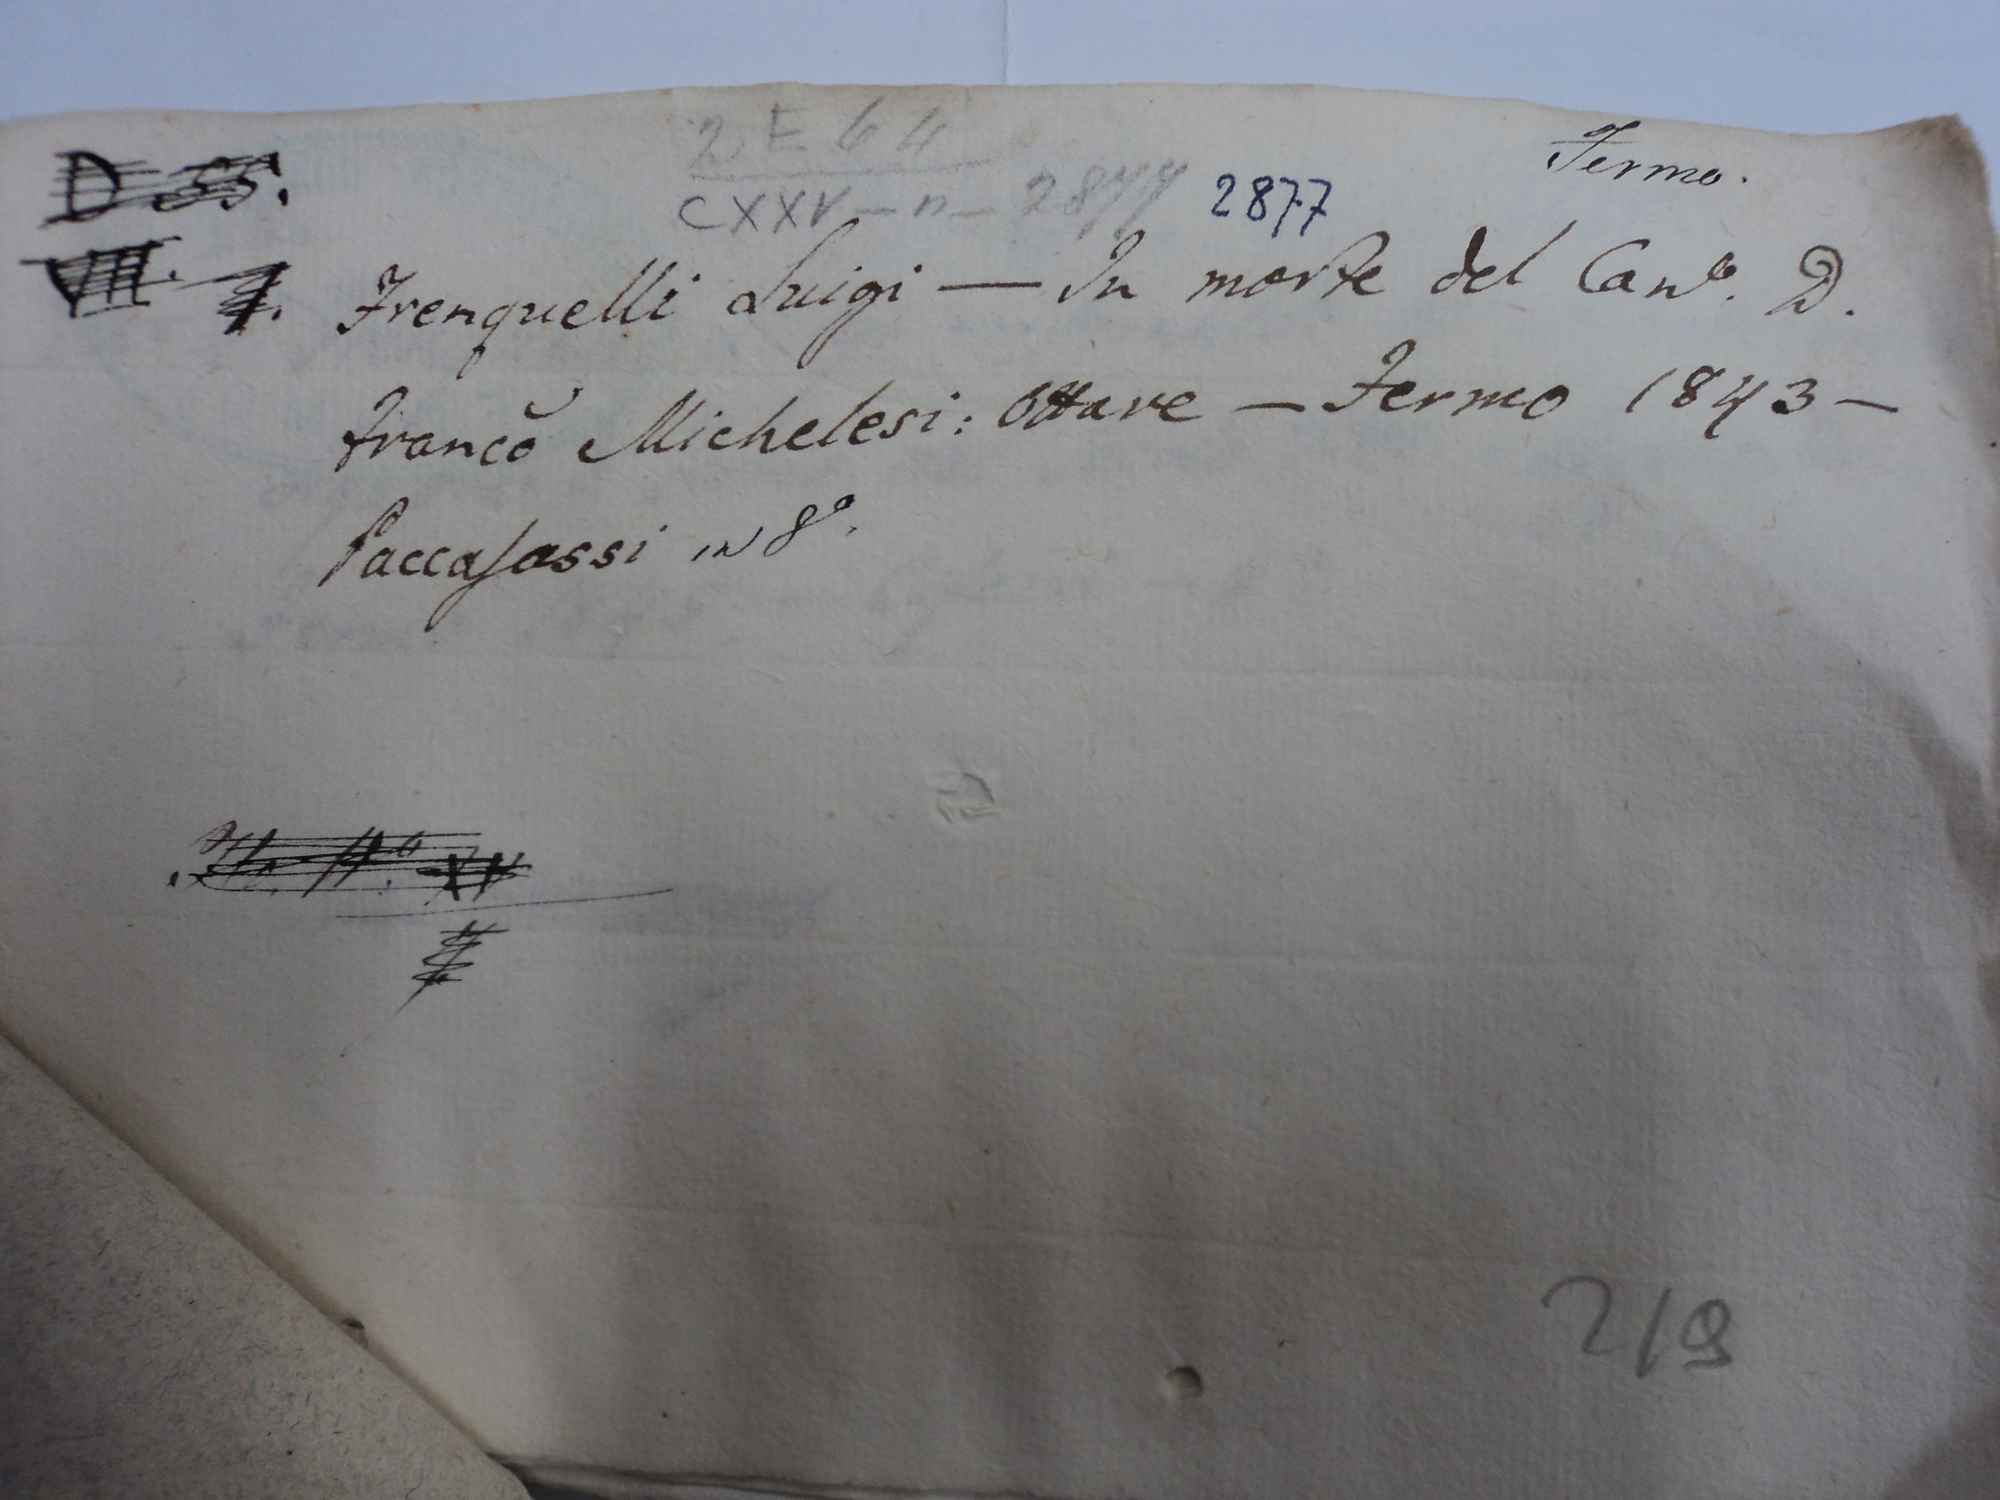 D 55.
2 E 64
Fermo.
CXXV — n — 2877 2877
VIII.
Frenquelli Luigi — In morte del Canº. D.
Francō Michelesi: Ottave — Fermo 1843 —
Paccasassi in 8º.
XV
219